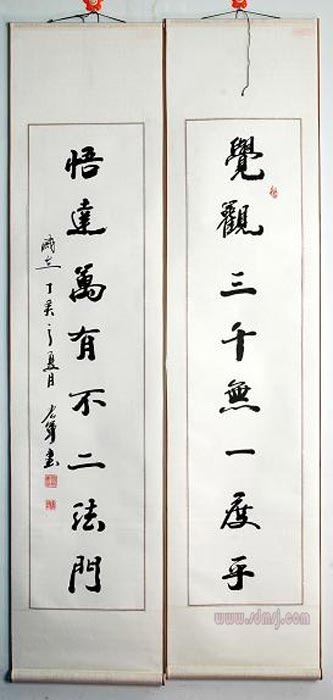 覺觀三千無一度乎
悟達萬有不二法門
丁亥
夏月
www.sdmsj.com